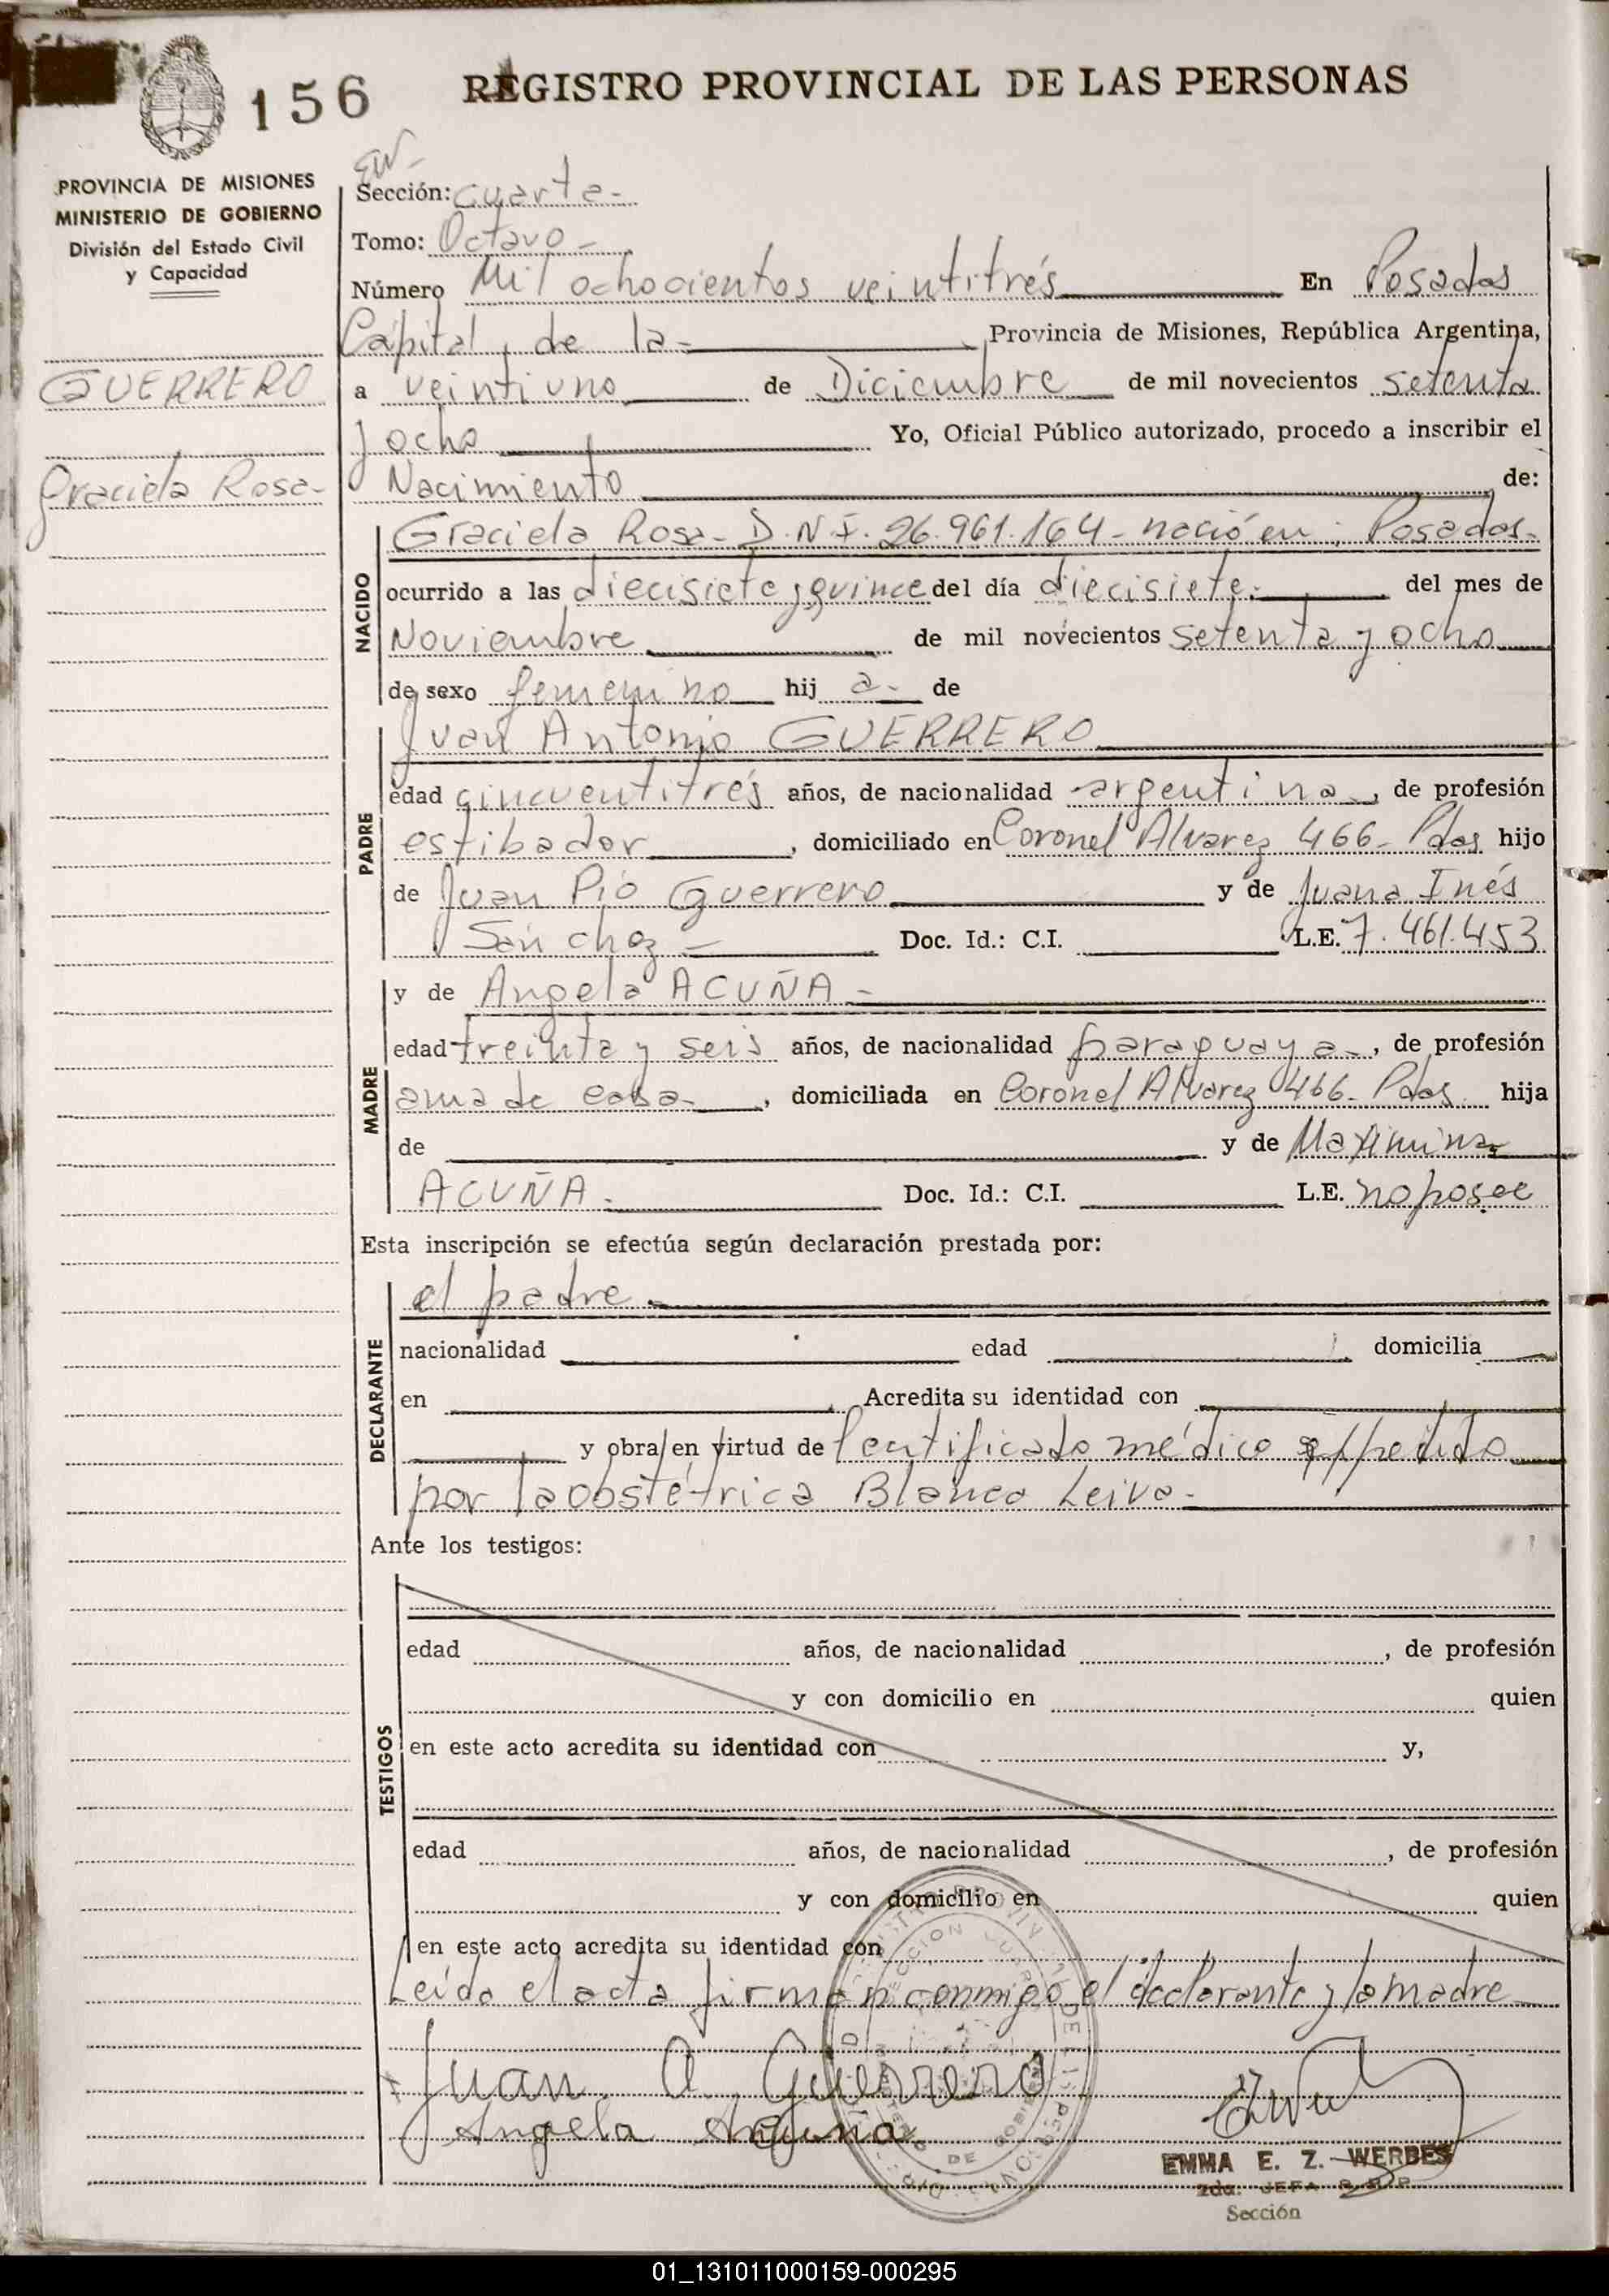 156 REGISTRO PROVINCIAL DE LAS PERSONAS
PROVINCIA DE MISIONES
MINISTERIO DE GOBIERNO
División del Estado Civil
y Capacidad
GUERRERO
Graciela Rosa-
EW-
Sección: cuarta-
Tomo: Octavo-
Número Mil ochocientos veintitrés En Posadas
Capital, de la- Provincia de Misiones, República Argentina,
a veintiuno de Diciembre de mil novecientos setenta
y ocho Yo, Oficial Público autorizado, procedo a inscribir el
Nacimiento de:
NACIDO
Graciela Rosa- D.N.I. 26.961.164- nació en: Posadas-
ocurrido a las diecisiete y quince del día diecisiete- del mes de
Noviembre de mil novecientos setenta y ocho
de sexo femenino hij a- de
PADRE
Juan Antonio GUERRERO
edad cincuentitrés años, de nacionalidad argentina-, de profesión
estibador, domiciliado en Coronel Alvarez 466- Pdas hijo
de Juan Pío Guerrero y de Juana Inés
Sánchez- Doc. Id.: C.I. L.E. 7.461.453
MADRE
y de Angela ACUÑA-
edad treinta y seis años, de nacionalidad paraguaya-, de profesión
ama de casa-, domiciliada en Coronel Alvarez 466- Pdas hija
de y de Maximina
ACUÑA- Doc. Id.: C.I. L.E. no posee
Esta inscripción se efectúa según declaración prestada por:
DECLARANTE
el padre-
nacionalidad edad domicilia
en Acredita su identidad con
y obra en virtud de Certificado médico expedido
por la obstétrica Blanca Leiva-
Ante los testigos:
TESTIGOS
edad años, de nacionalidad , de profesión
y con domicilio en quien
en este acto acredita su identidad con y,
edad años, de nacionalidad , de profesión
y con domicilio en quien
en este acto acredita su identidad con
Leída el acta firman conmigo el declarante y la madre
Juan A Guerrero
Angela Acuña
EMMA E. Z. WERBES
2da. JEFA R.P.P.
Sección
01_131011000159-000295